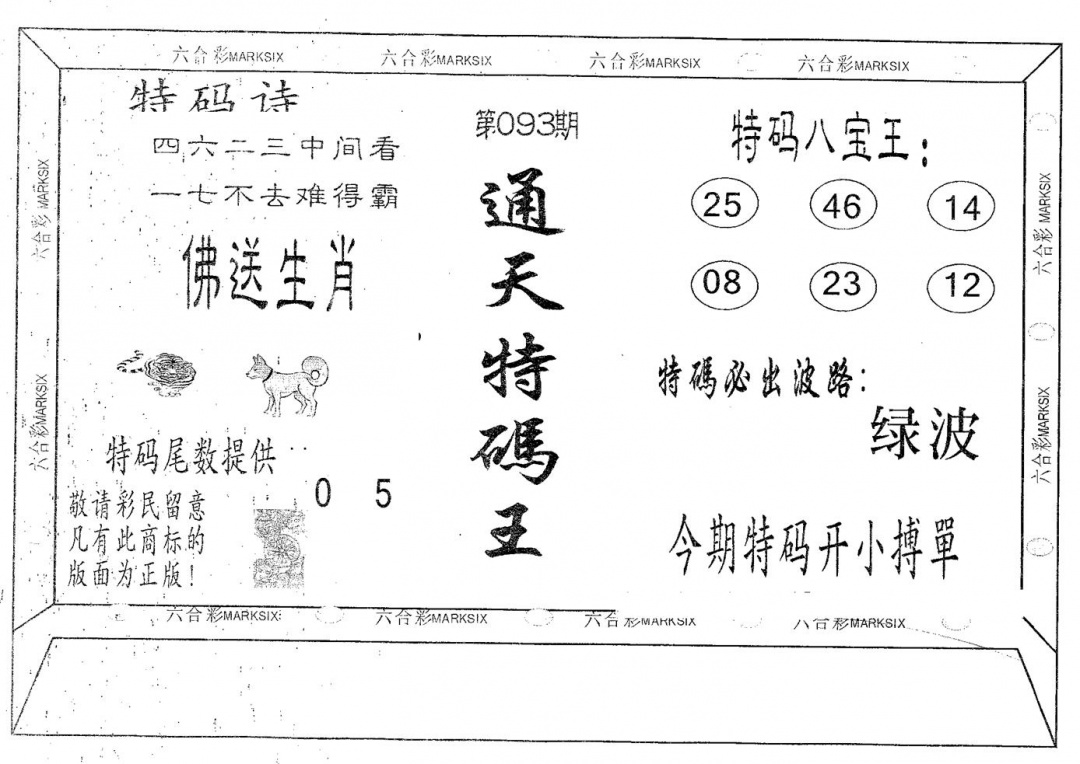 六合彩MARKSIX 六合彩MARKSIX 六合彩MARKSIX 六合彩MARKSIX
特码诗
四六二三中间看
一七不去难得霸
佛送生肖
特码尾数提供
0 5
敬请彩民留意
凡有此商标的
版面为正版!
第093期
通天特碼王
特码八宝王:
25 46 14
08 23 12
特碼必出波路:
绿波
今期特码开小搏單
六合彩MARKSIX
六合彩MARKSIX
六合彩MARKSIX
六合彩MARKSIX
六合彩MARKSIX 六合彩MARKSIX 六合彩MARKSIX 六合彩MARKSIX